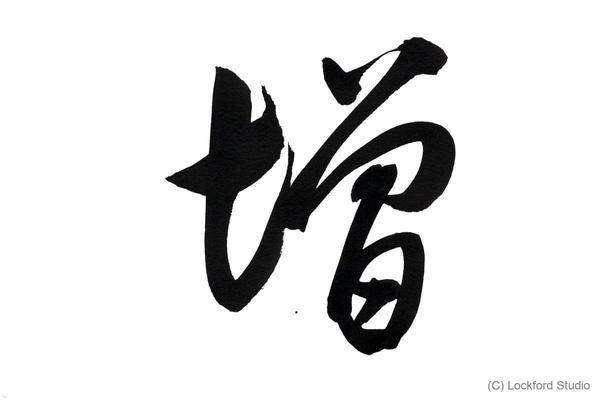 増
(C) Lockford Studio